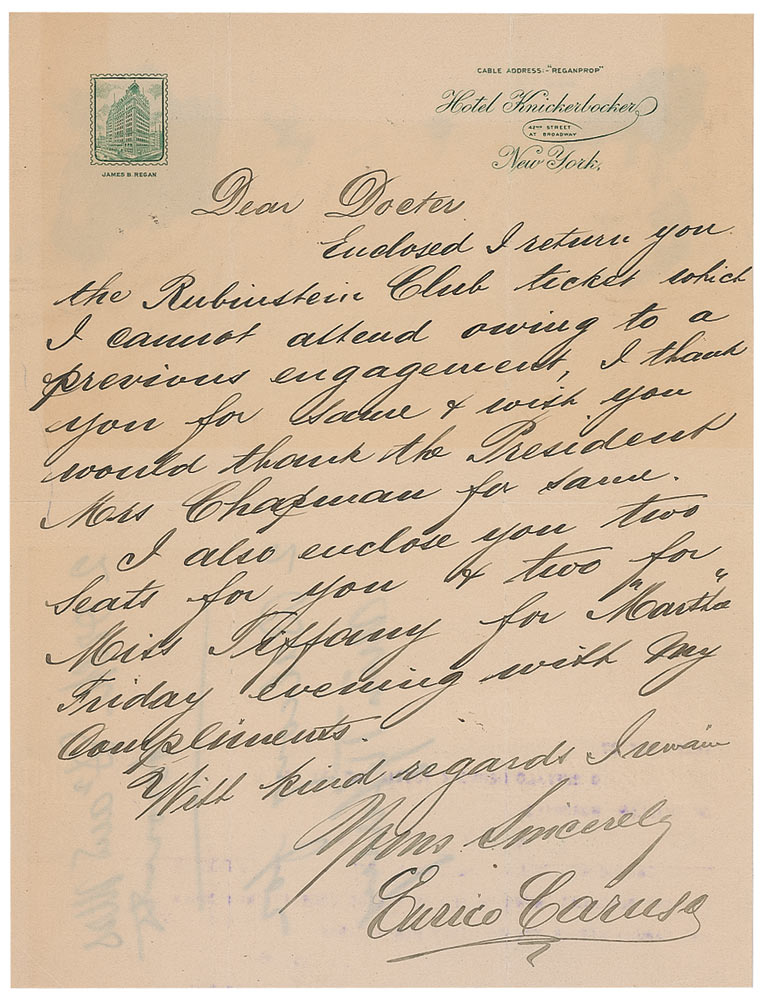 CABLE ADDRESS:-"REGANPROP"
Hotel Knickerbocker
42ND STREET
AT BROADWAY
New York.
JAMES B. REGAN
Dear Docter
Enclosed I return you
the Rubinstein Club ticket which
I cannot attend owing to a
previous engagement, I thank
you for same & wish you
would thank the President
Mrs Chapman for same.
I also enclose you two
seats for you & two for
Miss Tiffany for "Martha"
Friday evening with my
Compliments.
With kind regards I remain
Yours Sincerely
Enrico Caruso